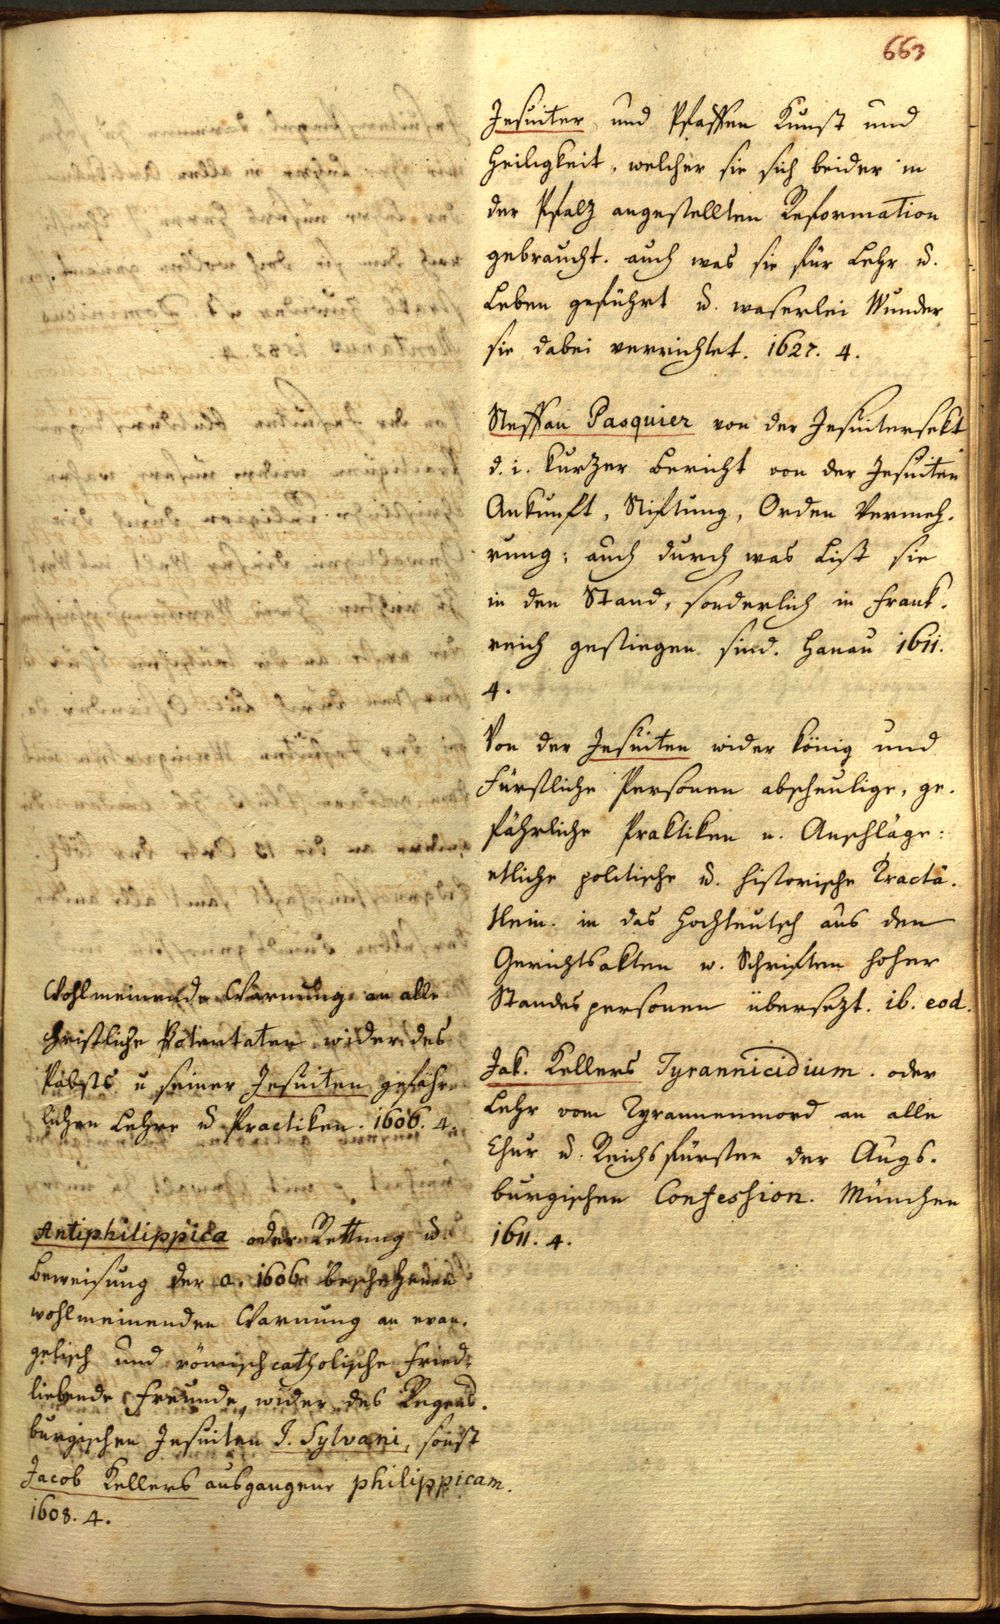 663
Jesuiter und Pfaffen Kunst und
Heiligkeit, welcher sie sich beider in
der Pfalz angestellten Reformation
gebraucht. auch was sie für Lehr u.
Leben geführt u. waserlei Wunder
sie dabei verrichtet. 1627. 4.
Steffan Pasquier von der Jesuitersekt
d. i. kurzer Bericht von der Jesuiten
Ankunft, Stiftung, Orden Vermeh-
rung; auch durch was List sie
in den Stand, sonderlich in Frank-
reich gestiegen sind. Hanau 1611.
4.
Von der Jesuiten wider König und
Fürstliche Personen abscheulige, ge-
fährliche Praktiken u. Anschläge:
etliche politische u. historische Tractä-
tlein. in das Hochteutsch aus den
Gerichtsakten u. Schriften hoher
Standespersonen übersezt. ib. eod.
Jak. Kellers Tyrannicidium. oder
Lehr vom Tyrannenmord an alle
Chur u. Reichsfürsten der Augs-
burgischen Confession. München
1611. 4.
Wohlmeinende Warnung an alle
christliche Potentaten wider des
Pabsts u seiner Jesuiten gefähr-
lichen Lehre u Practiken. 1606. 4.
Antiphilippica oder Rettung u.
Beweisung der a. 1606 beschehenen
wohlmeinenden Warnung an evan-
gelisch und römischcatholische Fried-
liebende Freunde, wider des Regens-
burgischen Jesuiten J. Sylvani, sonst
Jacob Kellers ausgangene philippicam.
1608. 4.